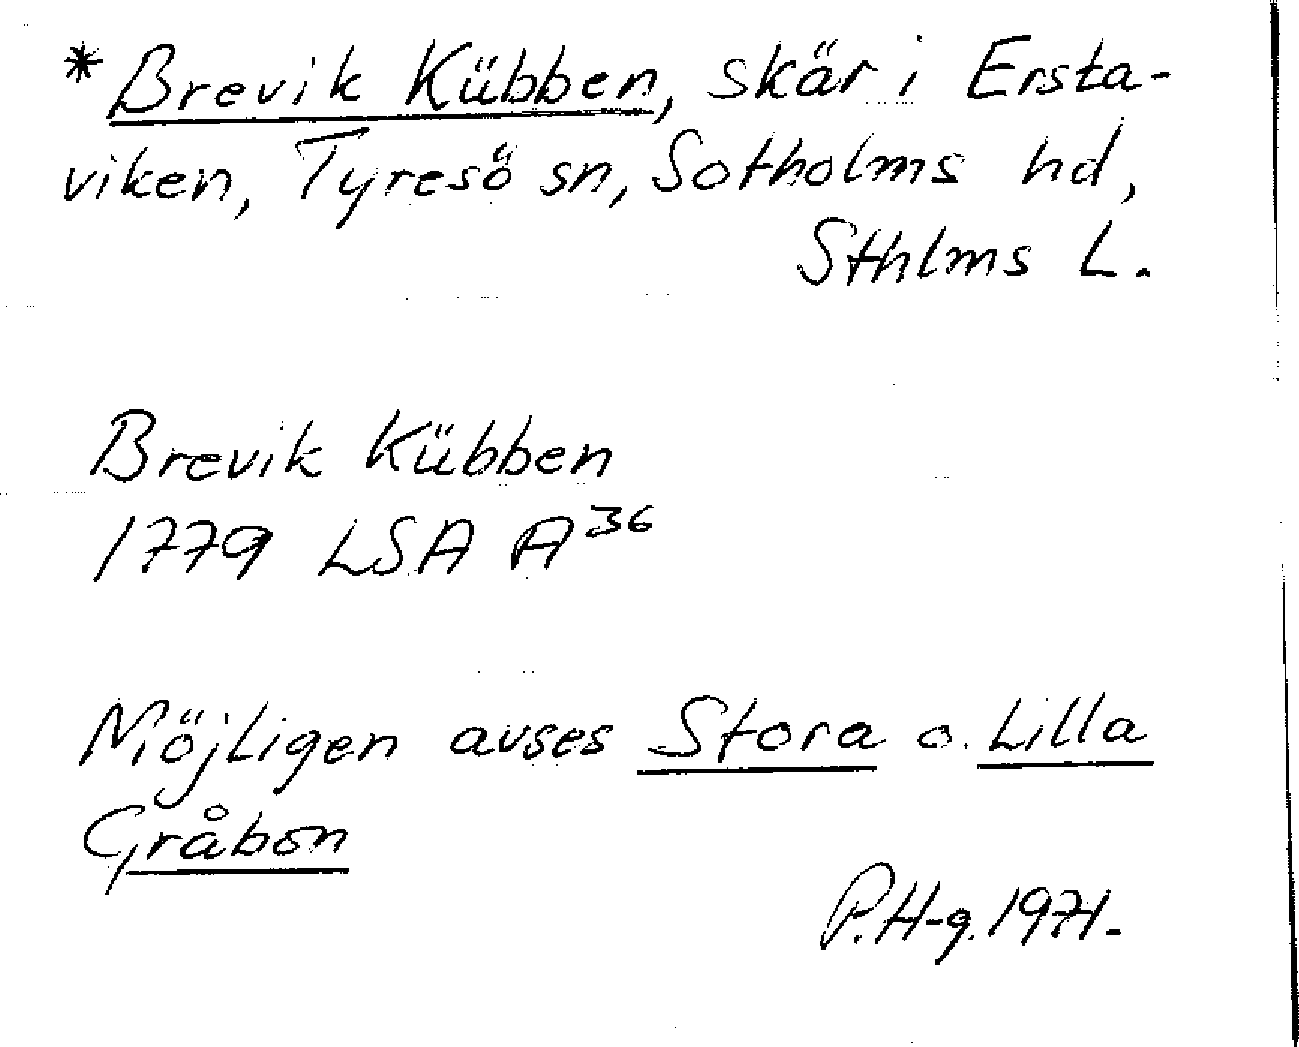 *Brevik Kübben, skär i Ersta-
viken, Tyresö sn, Sotholms hd,
Sthlms L.
Brevik Kübben
1779 LSA A36
Möjligen avses Stora o. Lilla
Gråbon
P.H-g. 1971.